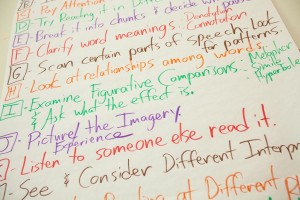 C- Pay Attention
D- Try Reading it in Different
E- Break it into chunks & decide
F- Clarify word meanings Denotation Connotation
G- Scan certain parts of speech, Look for patterns.
H- Look at relationships among words,
I- Examine Figurative Comparisons: Metaphor Simile Hyperbole
& Ask what the effect is.
J- Picture the Imagery
Experience
- Listen to someone else read it.
- See & Consider Different
at Different